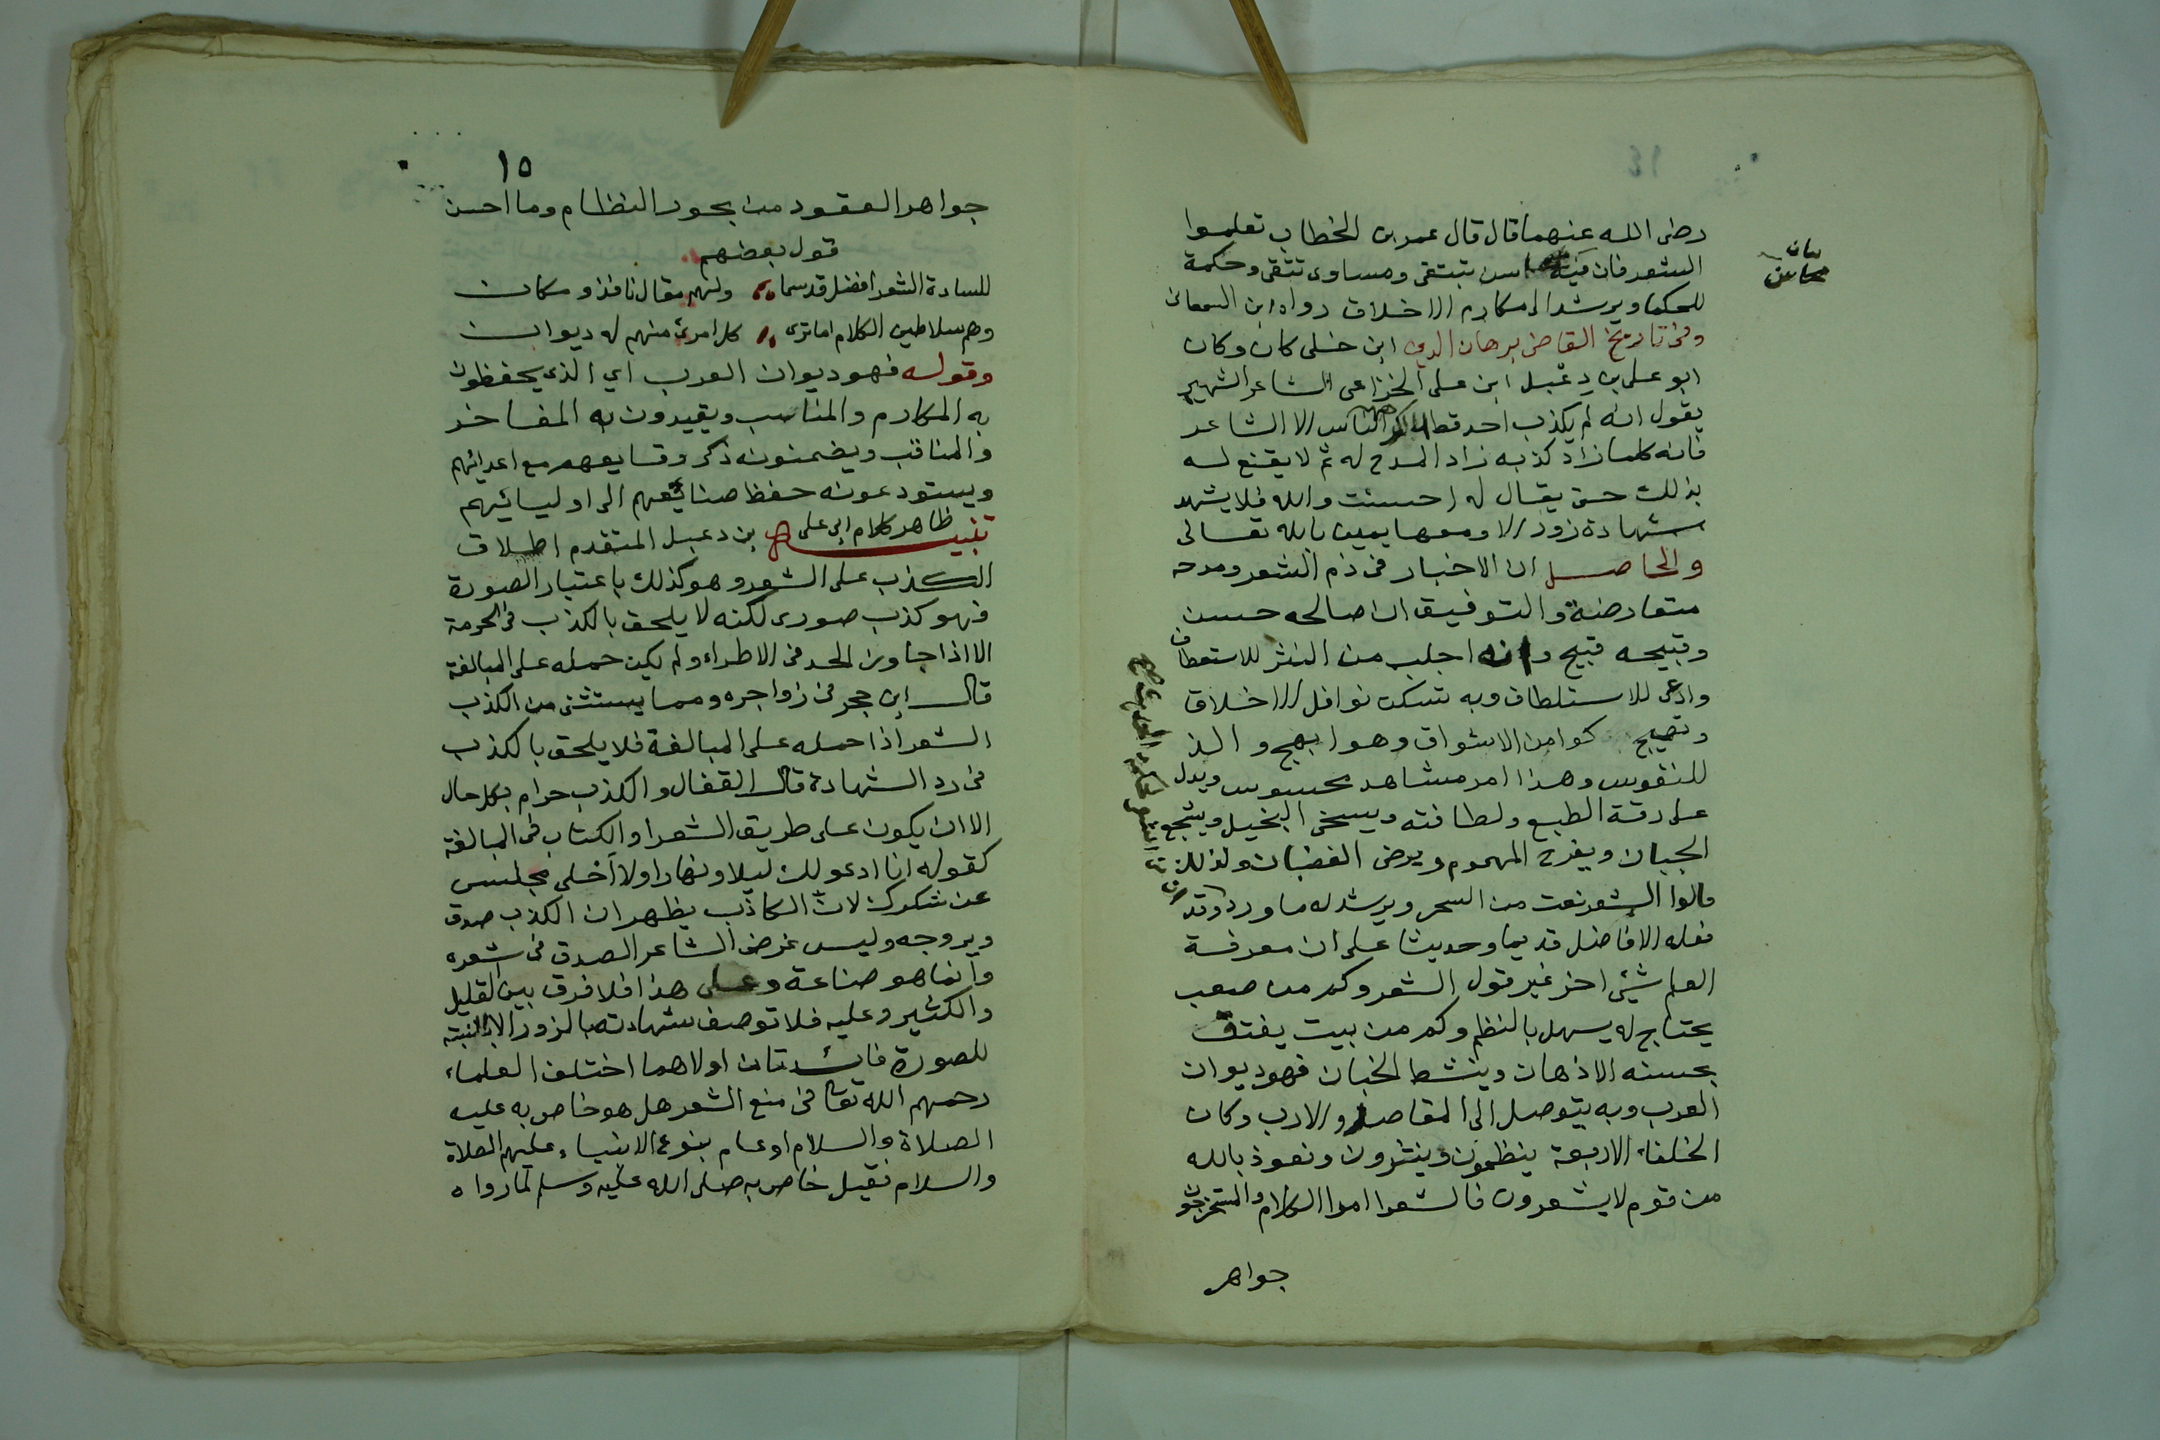 رضى الله عنهما قال قال عمر بن الخطاب تعلموا
الشعر فان فيه محاسن تبتغى ومساوى تتقى وحكمة
بيان
محاسن
للحكما ويرشد الى مكارم الاخلاق رواه ابن السمعانى
وفى تاريخ القاضى برهان الدين ابن خلى كان وكان
ابو على بن دعبل ابن على الخزاعى الشاعر الشهير
يقول انه لم يكذب احد قط الناس الا الشاعر
فانه كلما زاد كذبه زاد المدح له ثم لا يقنع له
بذلك حتى يقال له احسنت والله فلا يشهد
شهادة زور الا ومعها يمين بالله تعالى
والحاصل ان الاخبار فى ذم الشعر ومدحه
متعارضة والتوفيق ان صالحه حسن
وقبيحه قبيح وانه اجلب من النثر للاستعطاف
وادعى للاستلطاف وبه تسكن نوافل الاخلاق
وتهيج كوامن الاشواق وهو ابهج والذ
للنفوس وهذا امر مشاهد محسوس ويدل
على رقة الطبع ولطافته ويسخى البخيل ويشجع
الجبان ويفرح المهموم ويرضى الغضبان ولذلك
قالوا الشعر نعت من السحر ويرشد له ما ورد وقد
فعله الافاضل قديما وحديثا على ان معرفة
العلم شيئ اخر غير قول الشعر وكم من صعب
يحتاج له يسهل بالنظم وكم من بيت يفتق
بحسنه الاذهان وينشط الجبان فهو ديوان
العرب وبه يتوصل الى المقاصد والادب وكان
الخلفاء الاربعة ينظمون وينثرون ونعوذ بالله
من قوم لا يشعرون فالشعرا امرا الكلام والمستخرجون
جواهر
١٥
جواهر العقود من بحور النظام وما احسن
قول بعضهم
للسادة الشعرا فضل قد سما ولهم مقال نافذ ومكان
وهم سلاطين الكلام اما ترى كل امرئ منهم له ديوان
وقوله فهو ديوان العرب اي الذى يحفظون
به المكارم والمناسب ويقيدون به المفاخر
والمناقب ويضمنونه ذكر وقايعهم مع اعدائهم
ويستودعونه حفظ صنائعهم الى اوليائهم
تنبيه ظاهر كلام ابى على بن دعبل المتقدم اطلاق
الكذب على الشعر وهو كذلك باعتبار الصورة
فهو كذب صورى لكنه لا يلحق بالكذب فى الحرمة
الا اذا جاوز الحد فى الاطراء ولم يكن حمله على المبالغة
قال ابن حجر فى زواجره ومما يستثنى من الكذب
الشعر اذا حمله على المبالغة فلا يلحق بالكذب
فى رد الشهادة قال القفال والكذب حرام بكل حال
الا ان يكون على طريق الشعرا والكتاب فى المبالغة
كقوله انا ادعو لك ليلا ونهارا ولا اخلى مجلس
عن شكرك لان الكاذب يظهر ان الكذب صدق
ويروجه وليس غرض الشاعر الصدق فى شعره
وانما هو صناعة وعلى هذا فلا فرق بين القليل
والكثير وعليه فلا توصف شهادته بالزور الا بالنسبة
للصورة فائدتان اولاهما اختلف العلماء
رحمهم الله تعا فى منع الشعر هل هو خاص به عليه
الصلاة والسلام او عام بنوع الانبياء عليهم الصلاة
والسلام فقيل خاص به صلى الله عليه وسلم لما رواه